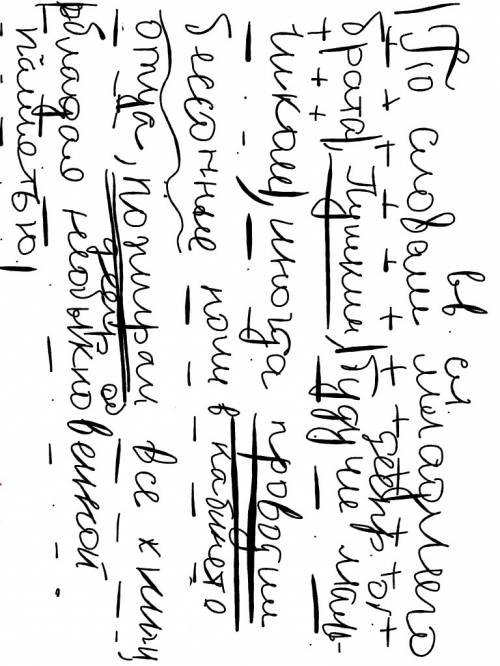 вв. сл.
По словам младшего
деепр. об.
брата, Пушкин, будучи маль-
чиком, иногда проводил
бессонные ночи в кабинете
отца, пожирая все книги,
обладая необыкновенной
памятью.